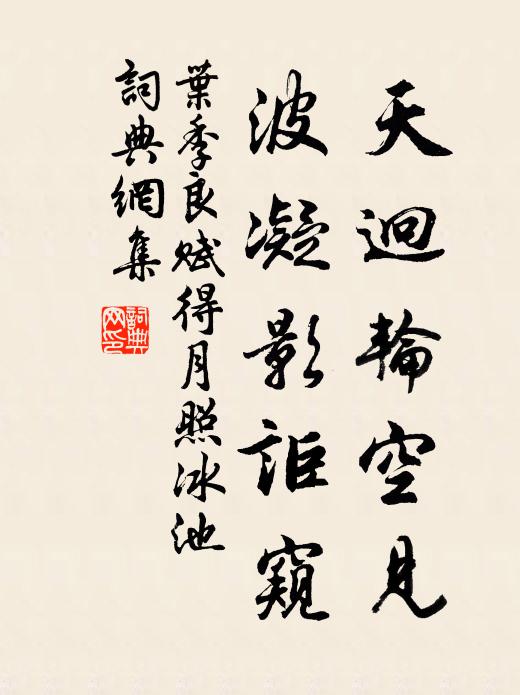 天迥輪空見
波凝影詎窺
葉季良賦得月照冰池
詞典網集
詞典網印